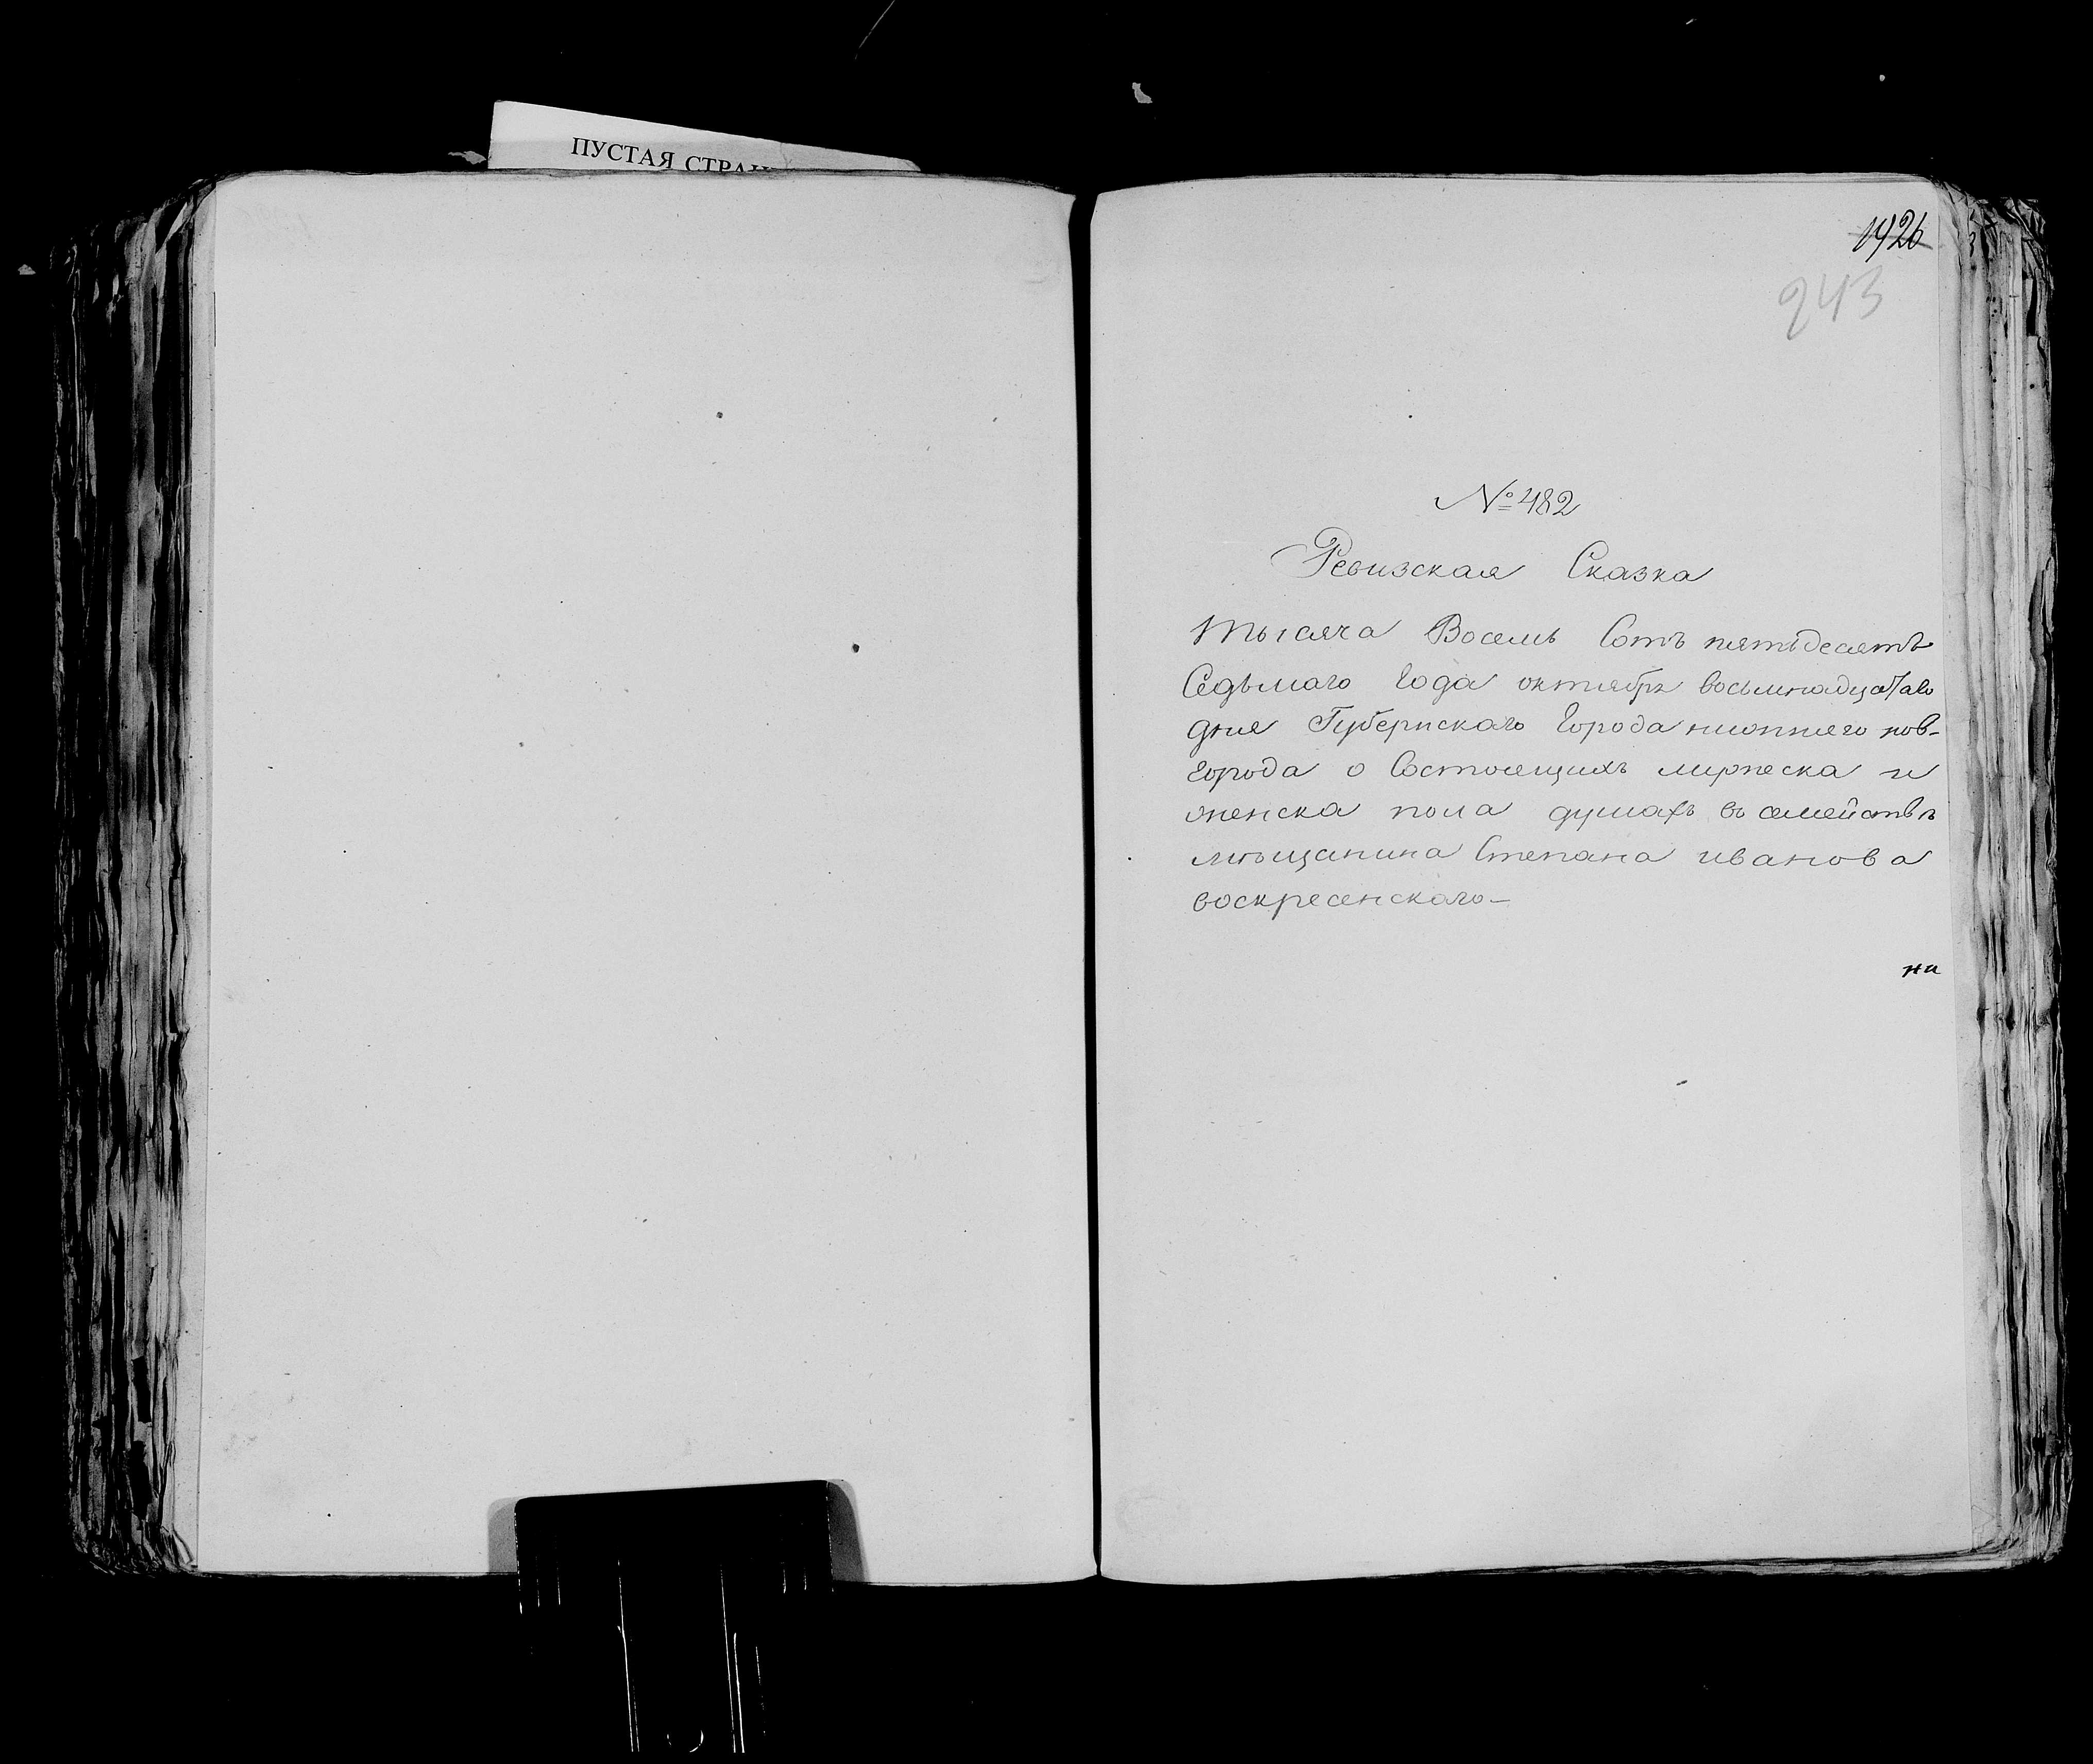 ПУСТАЯ СТРАН
1426
243
№ 482
Ревизская Сказка
тысяча Восемь Сотъ пятьдесятъ
Седьмаго Года октября восьмнадцатаго
дня Губернскаго Города нижняго нов-
города о Состоящихъ мужеска и
женска пола душахъ въ семействѣ
мѣщанина Степана иванова
воскресенскаго-
ни